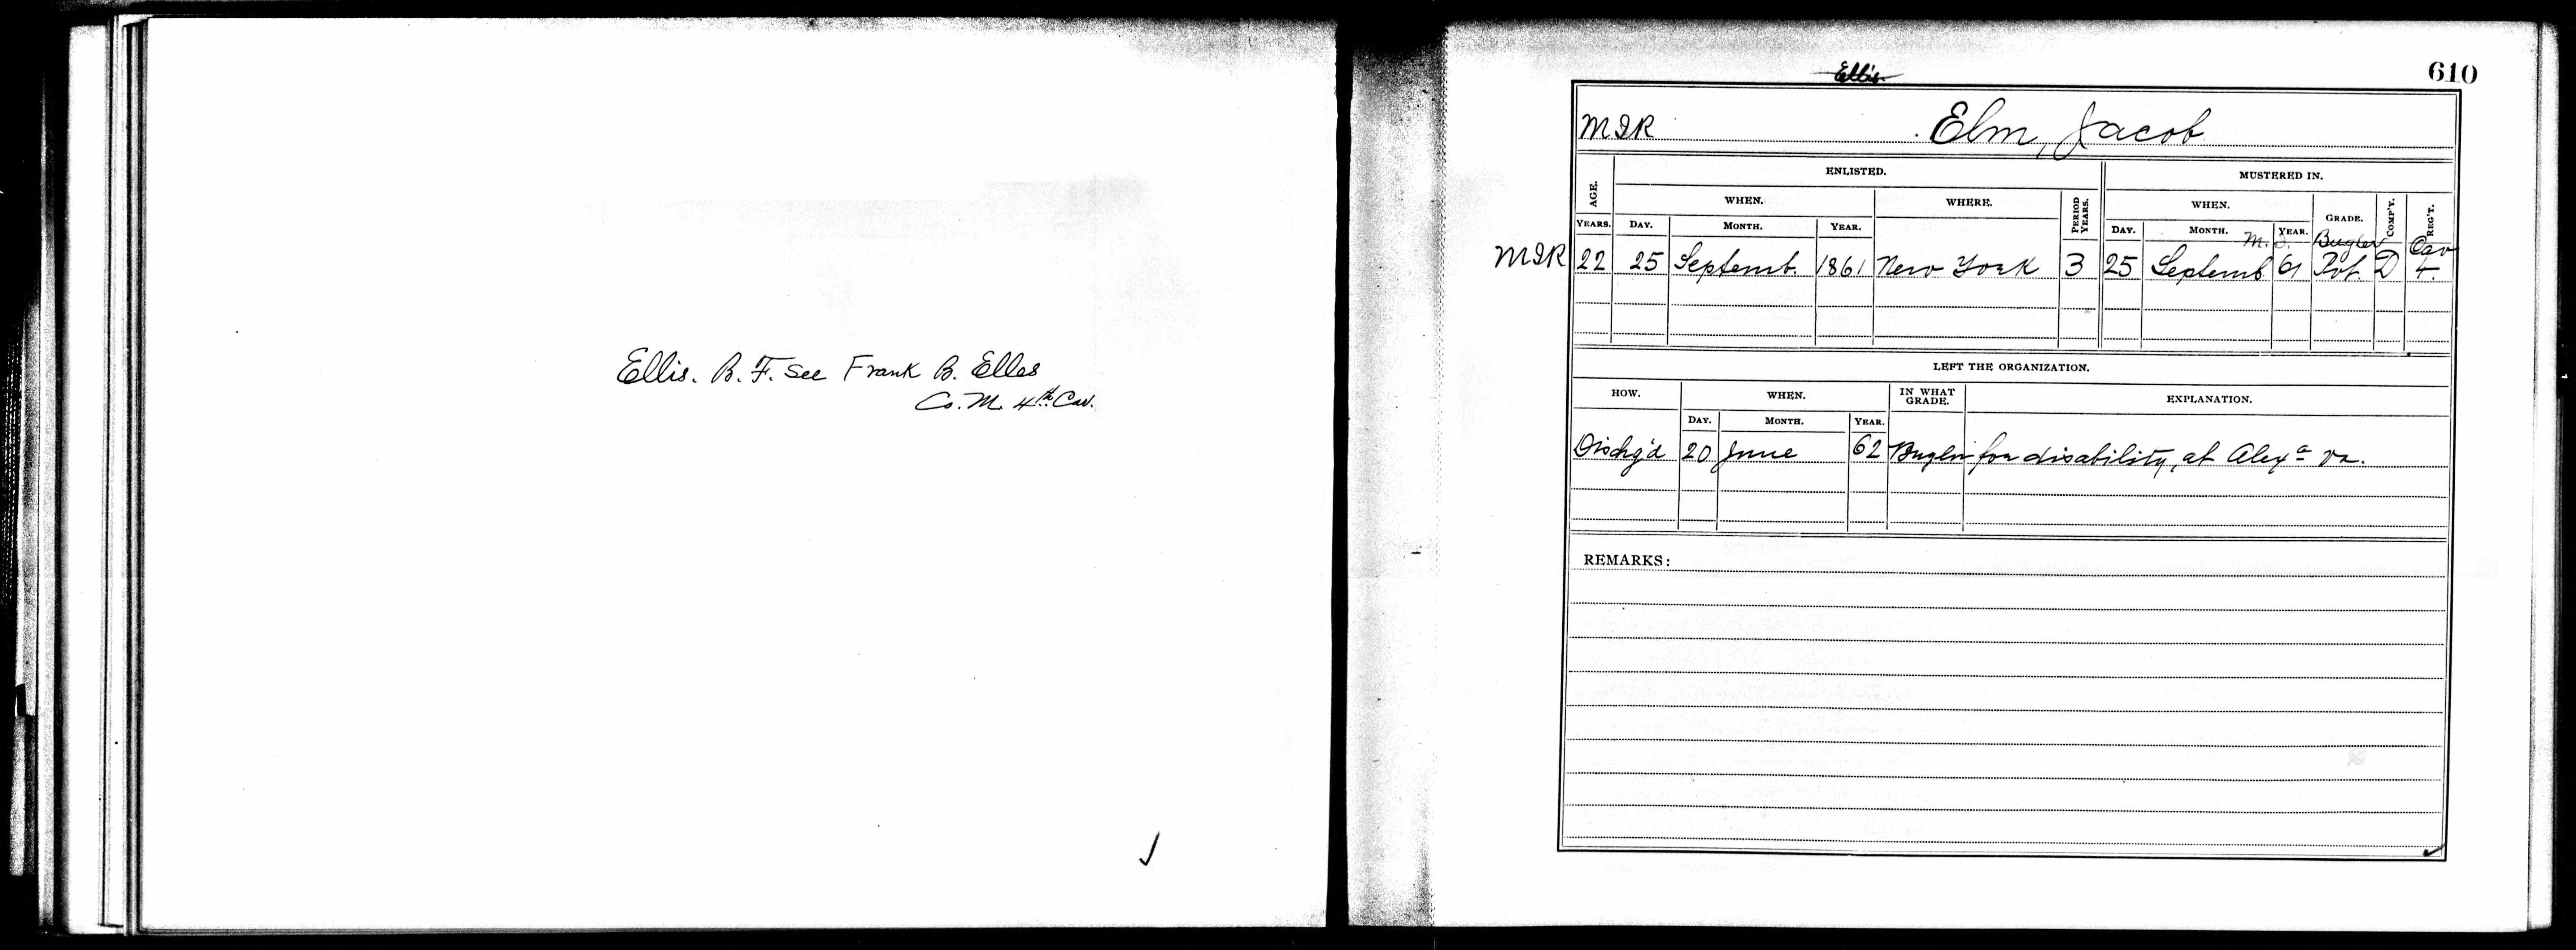 Ellis. B. F. see Frank B. Elles
Co. M. 4th Cav.
610
Ellis
MIR Elm, Jacob
AGE. ENLISTED. MUSTERED IN.
WHEN. WHERE. PERIOD YEARS. WHEN. GRADE. COMP'Y. REG'T.
YEARS. DAY. MONTH. YEAR. DAY. MONTH. YEAR.
M. I. Bugler Cav
MIR 22 25 Septemb. 1861 New York 3 25 Septemb 61 Pvt. D 4.
LEFT THE ORGANIZATION.
HOW. WHEN. IN WHAT GRADE. EXPLANATION.
DAY. MONTH. YEAR.
Dischg'd 20 June 62 Bugler for disability, at Alexa Va.
REMARKS: